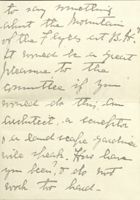 to say something
about the Mountain
of the Flyers at B.H.
It would be a great
pleasure to the
committee if you
would do this. An
architect, a sculptor
& a landscape gardener
will speak. How have
you been, & do not
work too hard.